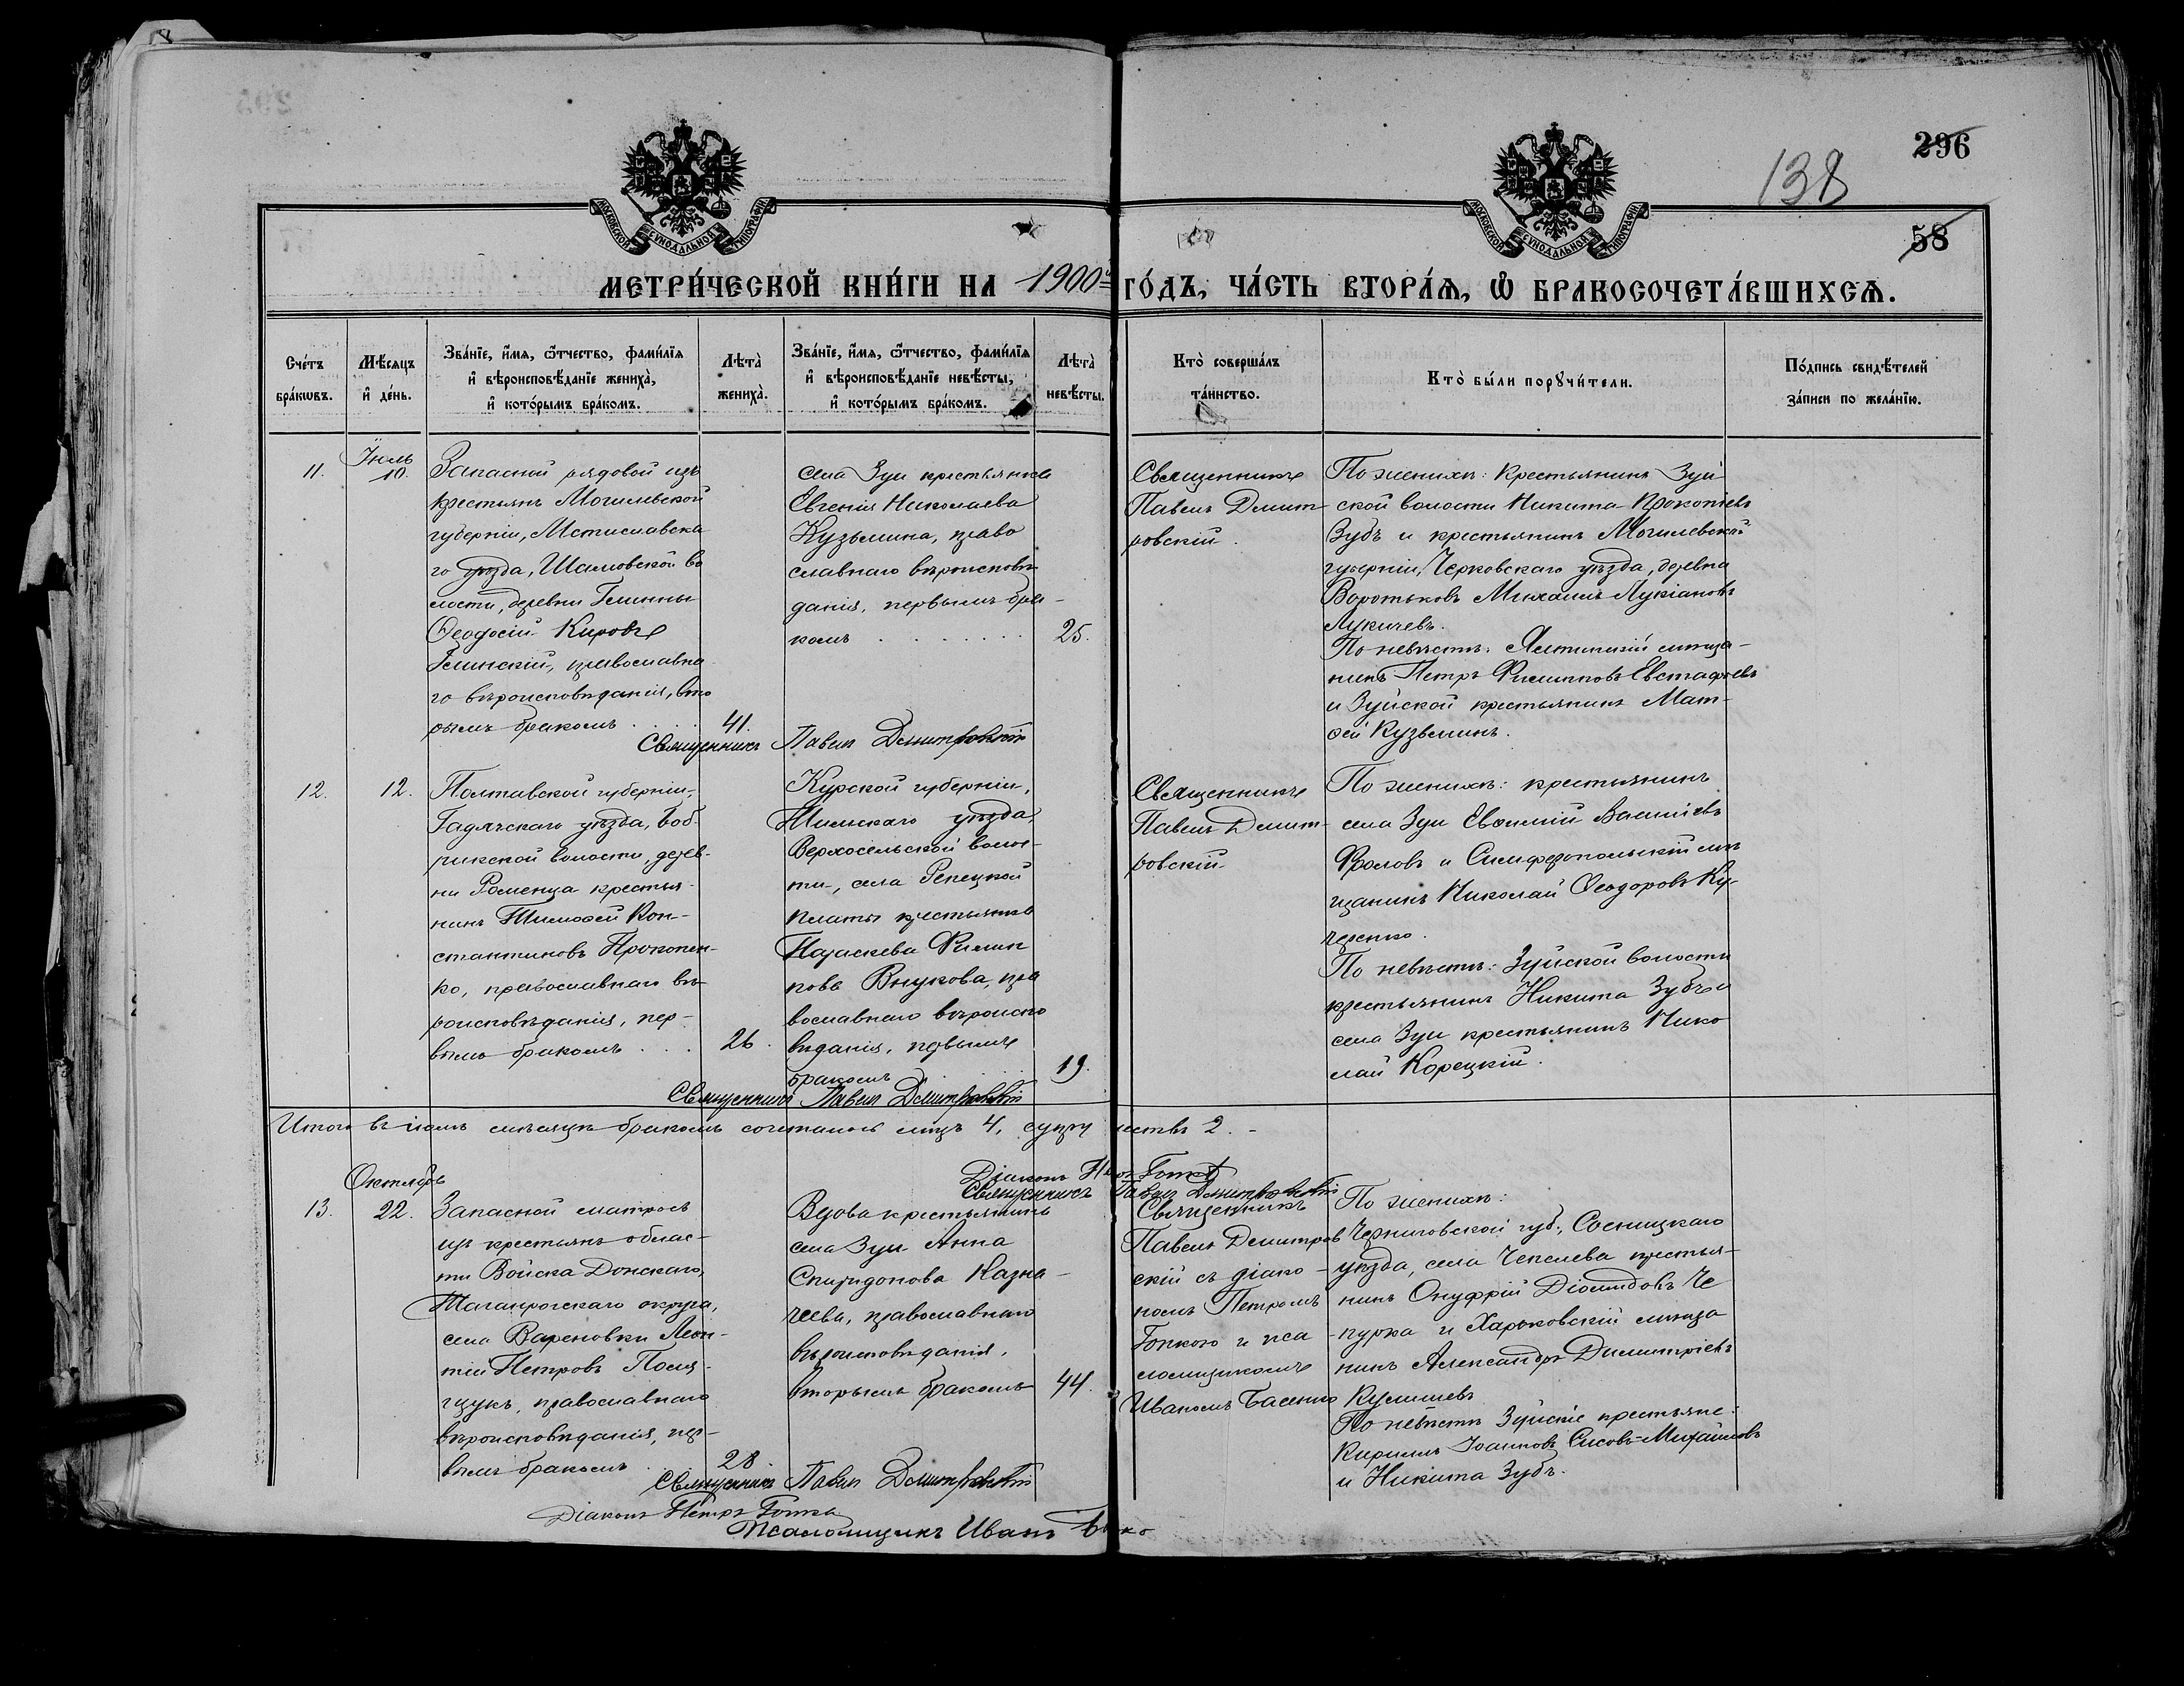 296
138
58
МОСКОВСКОЙ СѴНОДАЛЬНОЙ ТИПОГРАФІИ
МОСКОВСКОЙ СѴНОДАЛЬНОЙ ТИПОГРАФІИ
МЕТРИ́ЧЕСКОЙ КНИ́ГИ НА 1900й ГО́ДЪ, ЧА́СТЬ ВТОРА́Ѧ, Ѡ҆ БРАКОСОЧЕТА́ВШИХСѦ.
Сче́тъ
бра́кѡвъ.
Мѣ́сѧцъ
и҆ де́нь.
Зва́нїе, и҆́мѧ, ѻ҆́тчество, фами́лїѧ
и҆ вѣроисповѣ́данїе жениха̀,
и҆ кото́рымъ бра́комъ.
Лѣ́та̀
жениха̀.
Зва́нїе, и҆́мѧ, ѻ҆́тчество, фами́лїѧ
и҆ вѣроисповѣ́данїе невѣ́сты,
и҆ кото́рымъ бра́комъ.
Лѣ́та̀
невѣ́сты.
Кто̀ соверша́лъ
та́инство.
Кто̀ бы́ли порꙋчи́тели.
По́дпись свидѣ́телей
за́писи по жела́нїю.
11.
Іюль
10.
Запасной рядовой изъ
крестьянъ Могилевской
губерніи, Мстиславска
го уѣзда, Шамовской во
лости, деревни Глинны
Ѳеодосій Кировъ
Глинскій, православна
го вѣроисповѣданія, вто
рымъ бракомъ
41.
села Зуи крестьянка
Евгенія Николаева
Кузьмина, право
славнаго вѣроисповѣ
данія, первымъ бра-
комъ
25.
Священникъ
Павелъ Димит-
ровскій.
По женихѣ: Крестьянинъ Зуй
ской волости Никита Прокопіевъ
Зубъ и крестьянинъ Могилевской
губерніи, Черковскаго уѣзда, деревни
Воротьковъ Михаилъ Лукіановъ
Лукичевъ.
По невѣстѣ: Ялтинскій мѣща-
нинъ Петръ Филипповъ Евстафіевъ
и Зуйской крестьянинъ Мат-
ѳей Кузьминъ.
Священникъ Павелъ Димитровскій
12.
12.
Полтавской губерніи,
Гадячскаго уѣзда, Боб-
рикской волости, дерев-
ни Роменца крестья-
нинъ Тимоѳей Кон-
стантиновъ Прокопен-
ко, православнаго вѣ-
роисповѣданія, пер-
вымъ бракомъ
26.
Курской губерніи,
уѣзда,
Верхосельской волос-
ти, села Репецкой
Платы крестьянка
Параскева Филип
пова Внукова, пра
вославнаго вѣроиспо
вѣданія, первымъ
бракомъ
19.
Священникъ
Павелъ Димит-
ровскій.
По женихѣ: крестьянинъ
села Зуи Евѳимій Василіевъ
Фроловъ и Симферопольскій мѣ
щанинъ Николай Ѳеодоровъ Ку-
черенко.
По невѣстѣ: Зуйской волости
крестьянинъ Никита Зубъ и
села Зуи крестьянинъ Нико
лай Корецкій.
Священникъ Павелъ Димитровскій
Итого въ іюлѣ мѣсяцѣ бракомъ сочеталось лицъ 4, супружествъ 2.
Діаконъ Петръ Гопка
Священникъ Павелъ Димитровскій
Октябрь
13.
22.
Запасной матросъ
изъ крестьянъ облас-
ти Войска Донскаго,
Таганрогскаго округа,
села Вареновки Леон-
тій Петровъ Поля-
щукъ, православнаго
вѣроисповѣданія, пер-
вымъ бракомъ
28.
Вдова крестьянина
села Зуи Анна
Спиридонова Казна-
чеева, православнаго
вѣроисповѣданія,
вторымъ бракомъ
44.
Священникъ
Павелъ Димитров
скій съ діако-
номъ Петромъ
Гопкою и пса-
ломщикомъ
Иваномъ Басенко
По женихѣ:
Черниговской губ., Сосницкаго
уѣзда, села Чепелева крестья-
нинъ Онуфрій Діомидовъ Че
пурка и Харьковскій мѣща
нинъ Александръ Димитріевъ
По невѣстѣ Зуйскіе крестьяне:
Кириллъ Іоанновъ Сисовъ-Михайловъ
и Никита Зубъ.
Священникъ Павелъ Димитровскій
Діаконъ Петръ Гопка
Псаломщикъ Иванъ